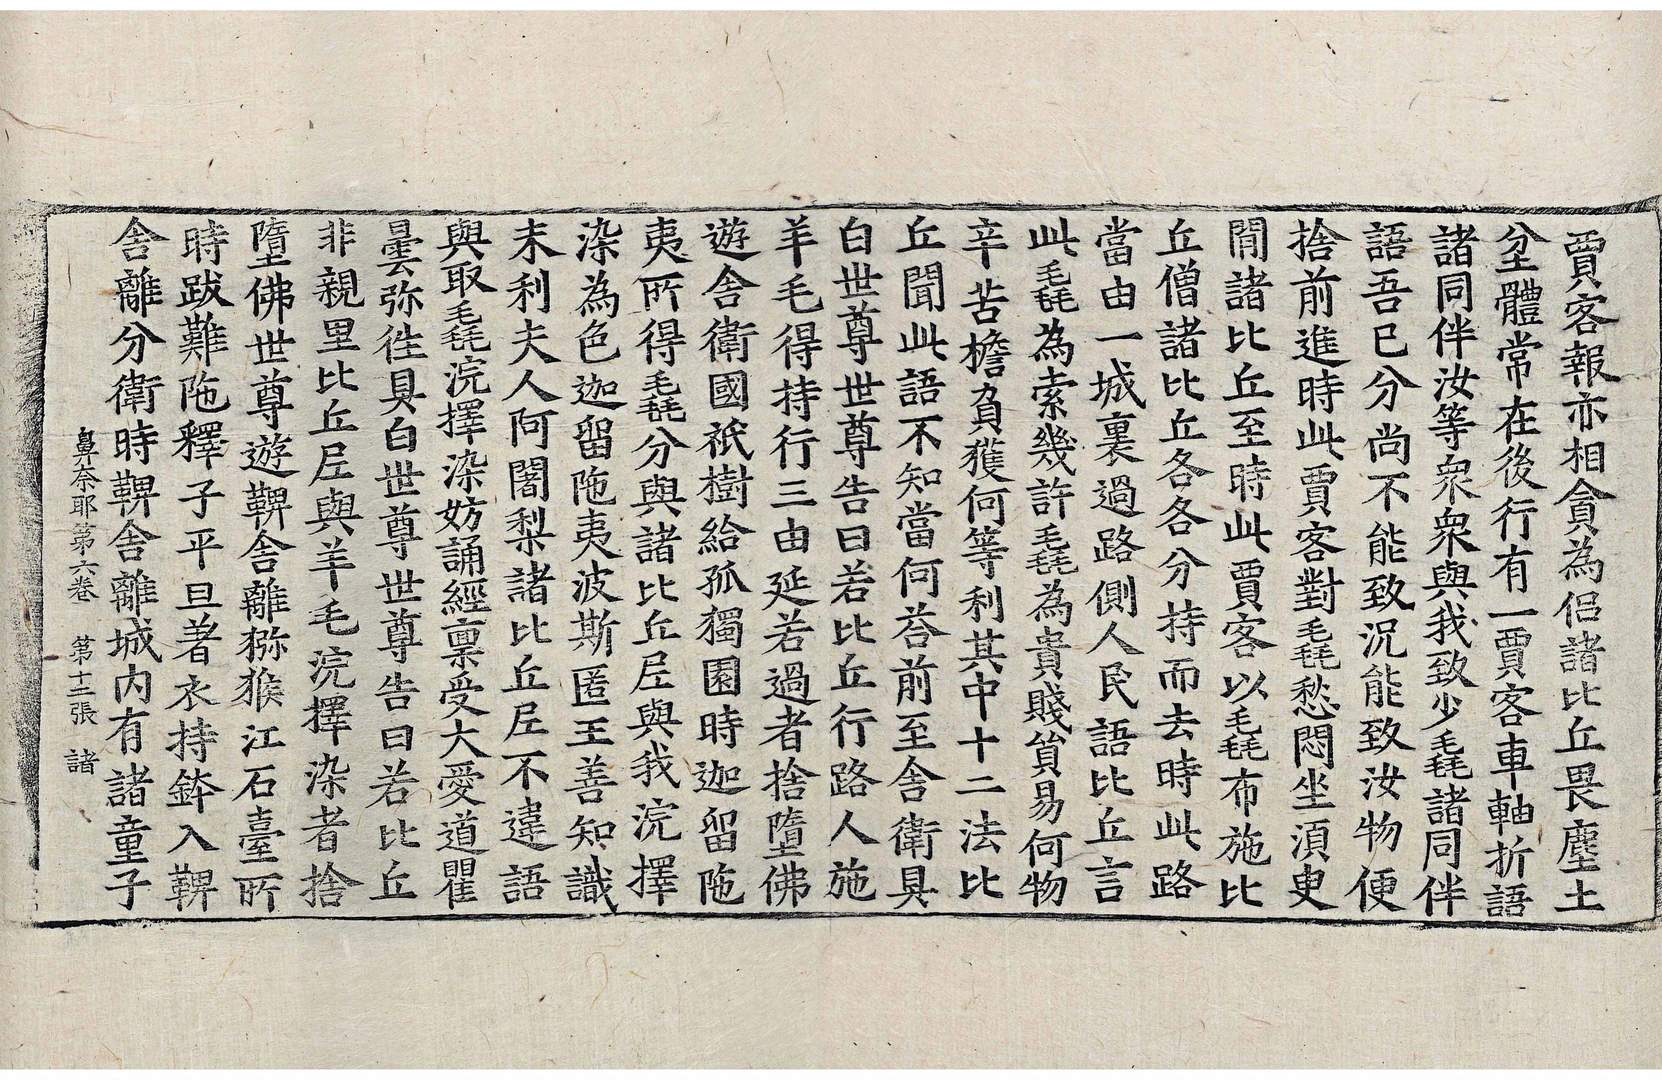 賈客報亦相貪為侶諸比丘畏塵土
坌體常在後行有一賈客車軸折語
諸同伴汝等衆衆與我致少毳諸同伴
語吾已分尚不能致況能致汝物便
捨前進時此賈客對毳愁悶坐湏臾
間諸比丘至時此賈客以毳布施比
丘僧諸比丘各各分持而去時此路
當由一城裏過路側人民語比丘言
此毳為索幾許毳為貴賤貿易何物
辛苦檐負獲何等利其中十二法比
丘聞此語不知當何荅前至舍衛具
白世尊世尊告曰若比丘行路人施
羊毛得持行三由延若過者捨墮佛
遊舍衛國祇樹給孤獨園時迦留陁
夷所得毳分與諸比丘𡰱與我浣擇
染為色迦留陁夷波斯匿王善知識
末利夫人阿闍梨諸比丘𡰱不違語
與取毳浣擇染妨誦經稟受大愛道瞿
曇弥徃具白世尊世尊告曰若比丘
非親里比丘𡰱與羊毛浣擇染者捨
墮佛世尊遊鞞舍離獼猴江石臺所
時跋難陁釋子平旦著衣持鉢入鞞
舍離分衛時鞞舍離城內有諸童子
鼻奈耶第六卷 第十二張 諸